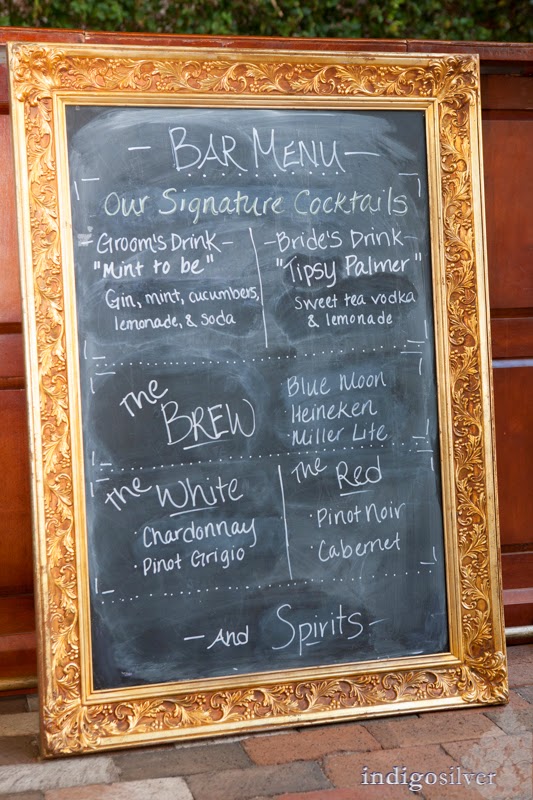 - BAR MENU -
Our Signature Cocktails
- Groom's Drink -
"Mint to be"
Gin, mint, cucumbers,
lemonade, & soda
- Bride's Drink -
"Tipsy Palmer"
sweet tea vodka
& lemonade
The
BREW
Blue Moon
· Heineken
Miller Lite
The White
· Chardonnay
· Pinot Grigio
The Red
· Pinot Noir
· Cabernet
- And Spirits -
indigosilver